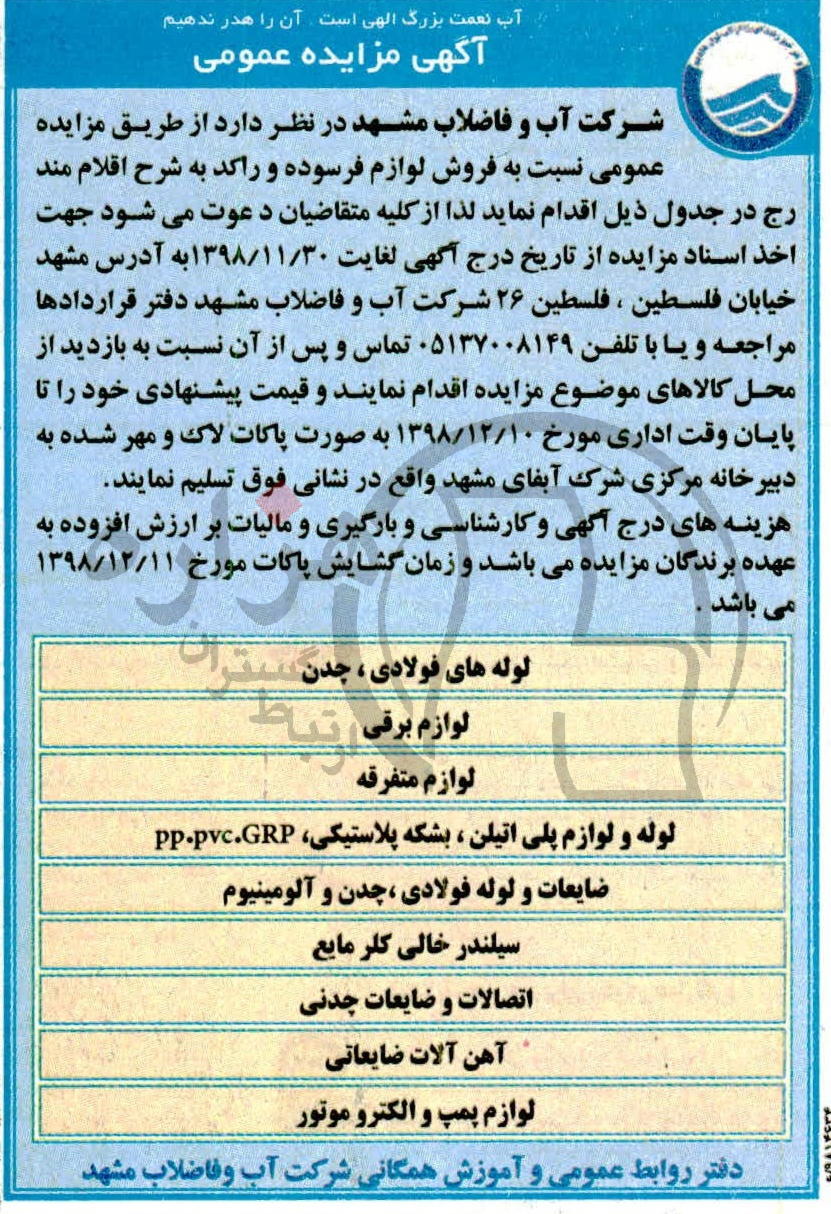 آب نعمت بزرگ الهی است . آن را هدر ندهیم
آگهی مزایده عمومی
شرکت آب و فاضلاب مشهد در نظر دارد از طریق مزایده
عمومی نسبت به فروش لوازم فرسوده و راکد به شرح اقلام مند
رج در جدول ذیل اقدام نماید لذا از کلیه متقاضیان د عوت می شود جهت
اخذ اسناد مزایده از تاریخ درج آگهی لغایت ۱۳۹۸/۱۱/۳۰به آدرس مشهد
خیابان فلسطین ، فلسطین ۲۶ شرکت آب و فاضلاب مشهد دفتر قراردادها
مراجعه و یا با تلفن ۰۵۱۳۷۰۰۸۱۴۹ تماس و پس از آن نسبت به بازدید از
محل کالاهای موضوع مزایده اقدام نمایند و قیمت پیشنهادی خود را تا
پایان وقت اداری مورخ ۱۳۹۸/۱۲/۱۰ به صورت پاکات لاک و مهر شده به
دبیرخانه مرکزی شرک آبفای مشهد واقع در نشانی فوق تسلیم نمایند.
هزینه های درج آگهی و کارشناسی و بارگیری و مالیات بر ارزش افزوده به
عهده برندگان مزایده می باشد و زمان گشایش پاکات مورخ ۱۳۹۸/۱۲/۱۱
می باشد .
هزاره
گستران
ارتباط
لوله های فولادی ، چدن
لوازم برقی
لوازم متفرقه
لوله و لوازم پلی اتیلن ، بشکه پلاستیکی، pp.pvc.GRP
ضایعات و لوله فولادی ،چدن و آلومینیوم
سیلندر خالی کلر مایع
اتصالات و ضایعات چدنی
آهن آلات ضایعاتی
لوازم پمپ و الکترو موتور
دفتر روابط عمومی و آموزش همگانی شرکت آب وفاضلاب مشهد